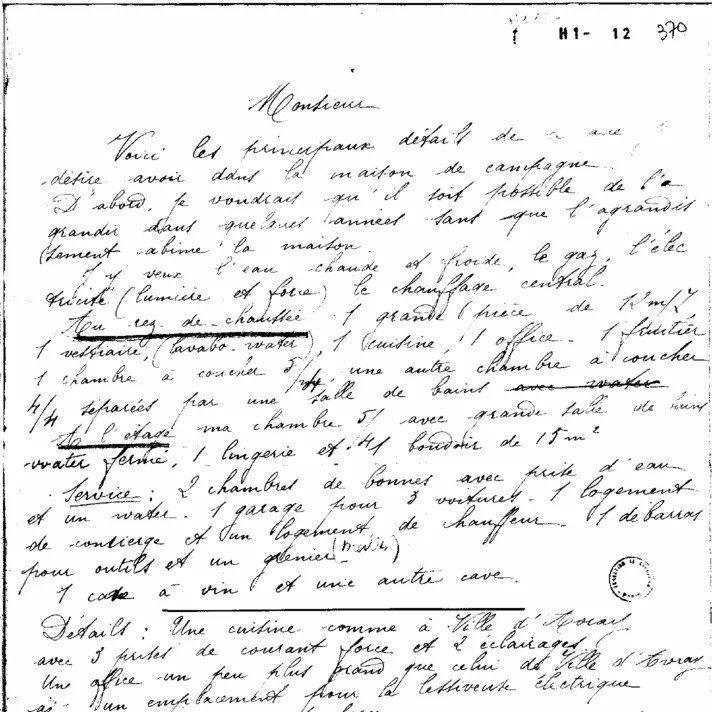 H1- 12 370
Monsieur
Voici les principaux détails de
désire avoir dans la maison de campagne
D'abord, je voudrais qu'il soit possible de l'a
grandir dans quelques années sans que l'agrandis
sement abîme la maison.
J'y veux l'eau chaude et froide, le gaz, l'élec
tricité (lumière et force) le chauffage central.
Au rez-de-chaussée 1 grande pièce de 12m/7
1 vestiaire, (lavabo-water), 1 cuisine 1 office - 1 fruitier
1 chambre à coucher une autre chambre à coucher
4/4 séparées par une salle de bains avec water
A l'étage ma chambre 5/ avec grande salle de bains
water fermé, 1 lingerie et 1 boudoir de 15 m²
Service : 2 chambres de bonnes avec prise d'eau
et un water. 1 garage pour 3 voitures - 1 logement
de concierge et un logement de chauffeur 1 débarras
pour outils et un grenier
1 cave à vin et une autre cave.
Détails : Une cuisine comme à Ville d'Avray
avec 3 prises de courant force et 2 éclairages
Une office un peu plus grand que celui de Ville d'Avray
un emplacement pour la lessiveuse électrique